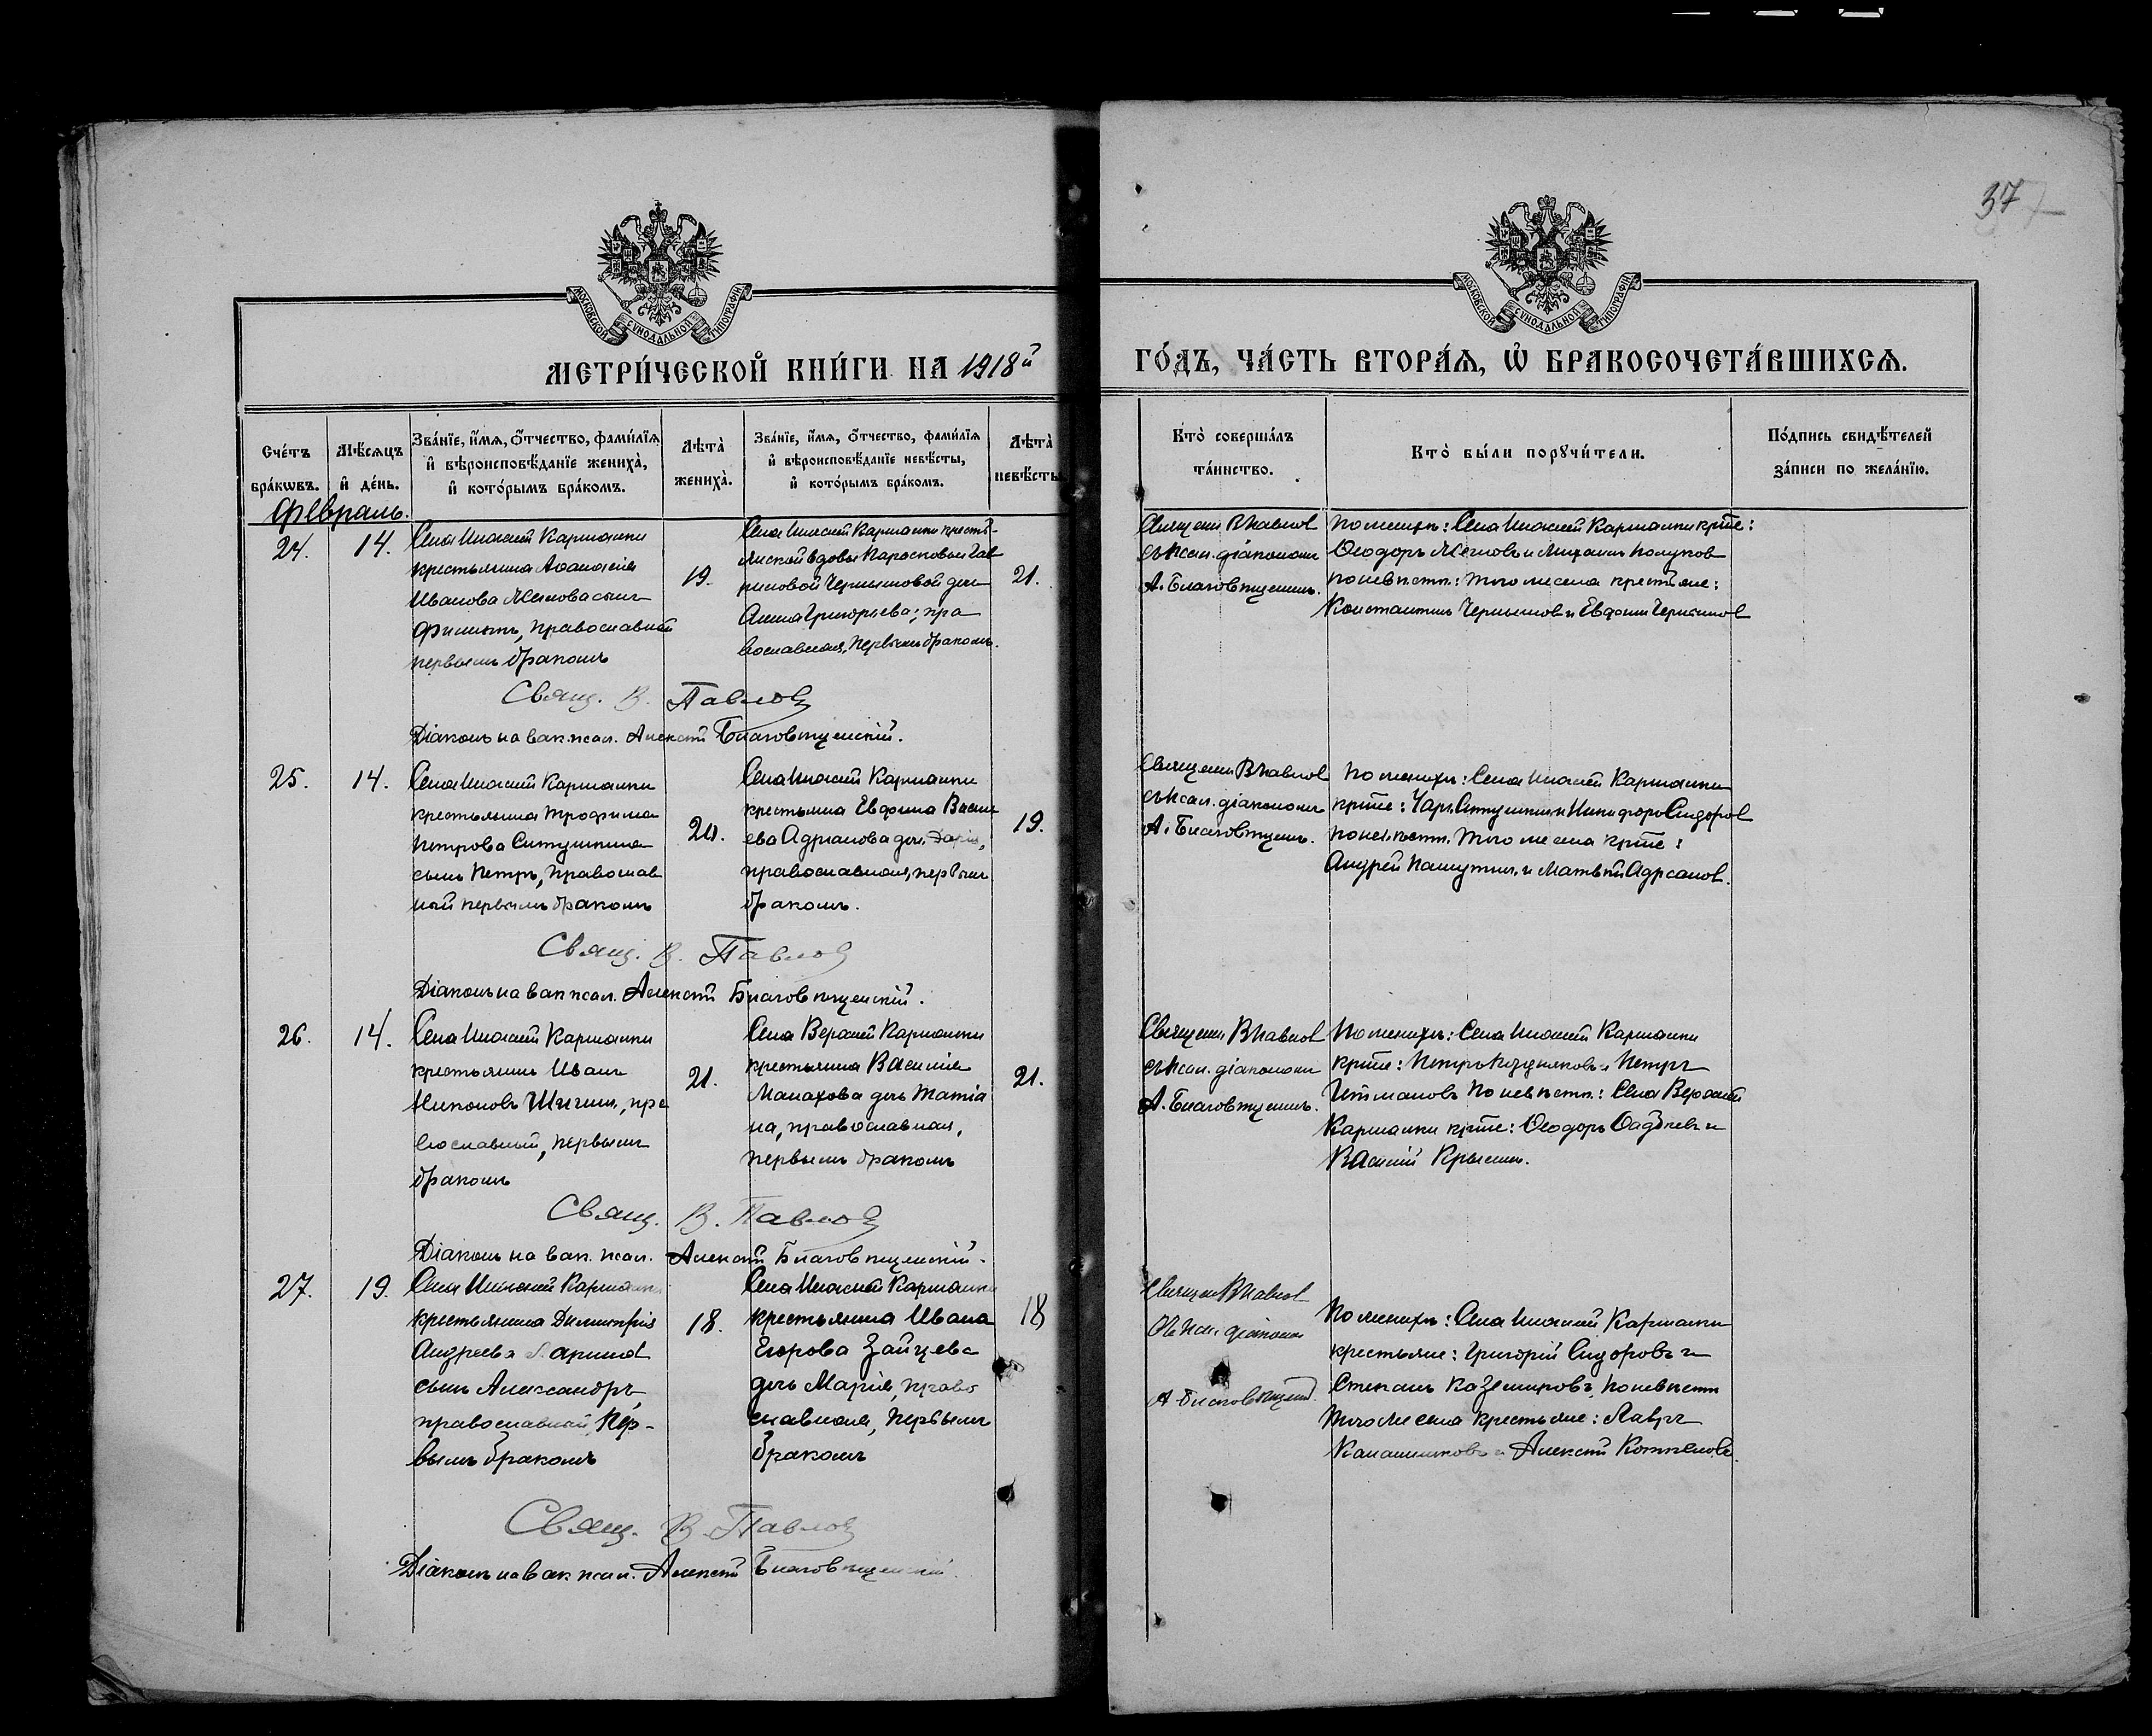 37
МОСКОВСКОЙ СУНОДАЛЬНОЙ ТИПОГРАФІИ
МОСКОВСКОЙ СУНОДАЛЬНОЙ ТИПОГРАФІИ
МЕТРИ́ЧЕСКОЙ КНИ́ГИ НА 1918й
ГО́ДЪ, ЧА́СТЬ ВТОРА́Ѧ, Ѽ БРАКОСОЧЕТА́ВШИХСѦ.
Сче́тъ бра́кωвъ.
Мѣ́сѧцъ и҆ де́нь.
Зва́нїе, и҆́мѧ, ѻ҆́тчество, фами́лїѧ
и҆ вѣроисповѣ́данїе жениха̀,
и҆ кото́рымъ бра́комъ.
Лѣта̀ жениха̀.
Зва́нїе, и҆́мѧ, ѻ҆́тчество, фами́лїѧ
и҆ вѣроисповѣ́данїе невѣ́сты,
и҆ кото́рымъ бра́комъ.
Лѣта̀ невѣ́сты
Кто̀ соверша́лъ
та́инство.
Кто̀ бы́ли порꙋчи́тели.
По́дпись свидѣ́телей
за́писи по жела́нїю.
Февраль.
24.
14.
Села Нижней Кармалки
крестьянина Аѳанасія
Иванова сынъ
Филиппъ, православный
первымъ бракомъ
19.
Села Нижней Кармалки кресть-
янской вдовы Парасковьи Гав
риловой Чернышовой дочь
Анна Григорьева; пра
вославная, первымъ бракомъ.
21.
Священ. В Павлов
съ псал. діакономъ
А. Благовѣщенск.
По женихѣ: Села Нижней Кармалки крт̃е:
Ѳеодоръ и Михаилъ Полуков
по невѣстѣ: того же села крестьяне:
Константинъ Чернышовъ и Евдоким Чернышов
Свящ. В. Павлов
Діаконъ на вак. псал. Алексѣй Благовѣщенскій.
25.
14.
Села Нижней Кармалки
крестьянина Трофима
Петрова Ситушкина
сынъ Петръ, православ
ный первымъ бракомъ
20.
Села Нижней Кармалки
крестьянина Ефрема Васил
ева Адрианова доч. Дарія,
православная, первымъ
бракомъ.
19.
Священ. В Павлов
съ псал. діакономъ
А. Благовѣщенск.
По женихѣ: Села Нижней Кармалки
крт̃е: Ситушкин и Никифоръ Сидоров
по невѣстѣ. того же села крт̃е:
Андрей Пашутин. и Матвѣй Адрсанов.
Свящ. В. Павлов
Діаконъ на вак псал. Алексѣй Благовѣщенскій.
26.
14.
Села Нижней Кармалки
крестьянинъ Иванъ
Никоновъ Шигин, пра
вославный, первымъ
бракомъ
21.
Села Верхней Кармалки
крестьянина Василія
Малахова дочь Татіа
на, православная,
первымъ бракомъ
21.
Священ. В Павлов
съ псал. діакономъ
А. Благовѣщенск.
По женихѣ: Села Нижней Кармалки
крт̃е: Петръ Поздняковъ и Петръ
По невѣстѣ: Села Верхней
Кармалки крт̃е: Ѳеодоръ Ѳадѣевъ и
Василій Крысин.
Свящ. В. Павлов
Діаконъ на вак. псал. Алексѣй Благовѣщенскій.
27.
19.
Села Нижней Кармалки
крестьянина Димитрія
Андреева Ларинов
сынъ Александръ,
православный, пер-
вымъ бракомъ
18.
Села Нижней Кармалки
крестьянина Ивана
Егорова Зайцева
дочь Марія, право
славная, первымъ
бракомъ
18
Священ В Павлов
съ псал. діакономъ
А. Благовѣщенск.
По женихѣ: Села Нижней Кармалки
крестьяне: Григорій Сидоровъ и
Степанъ Каземировъ, по невѣстѣ
того же села крестьяне: Лавръ
Калашниковъ и Алексѣй Котковъ.
Свящ. В. Павлов
Діаконъ на вак псал. Алексѣй Благовѣщенскій.